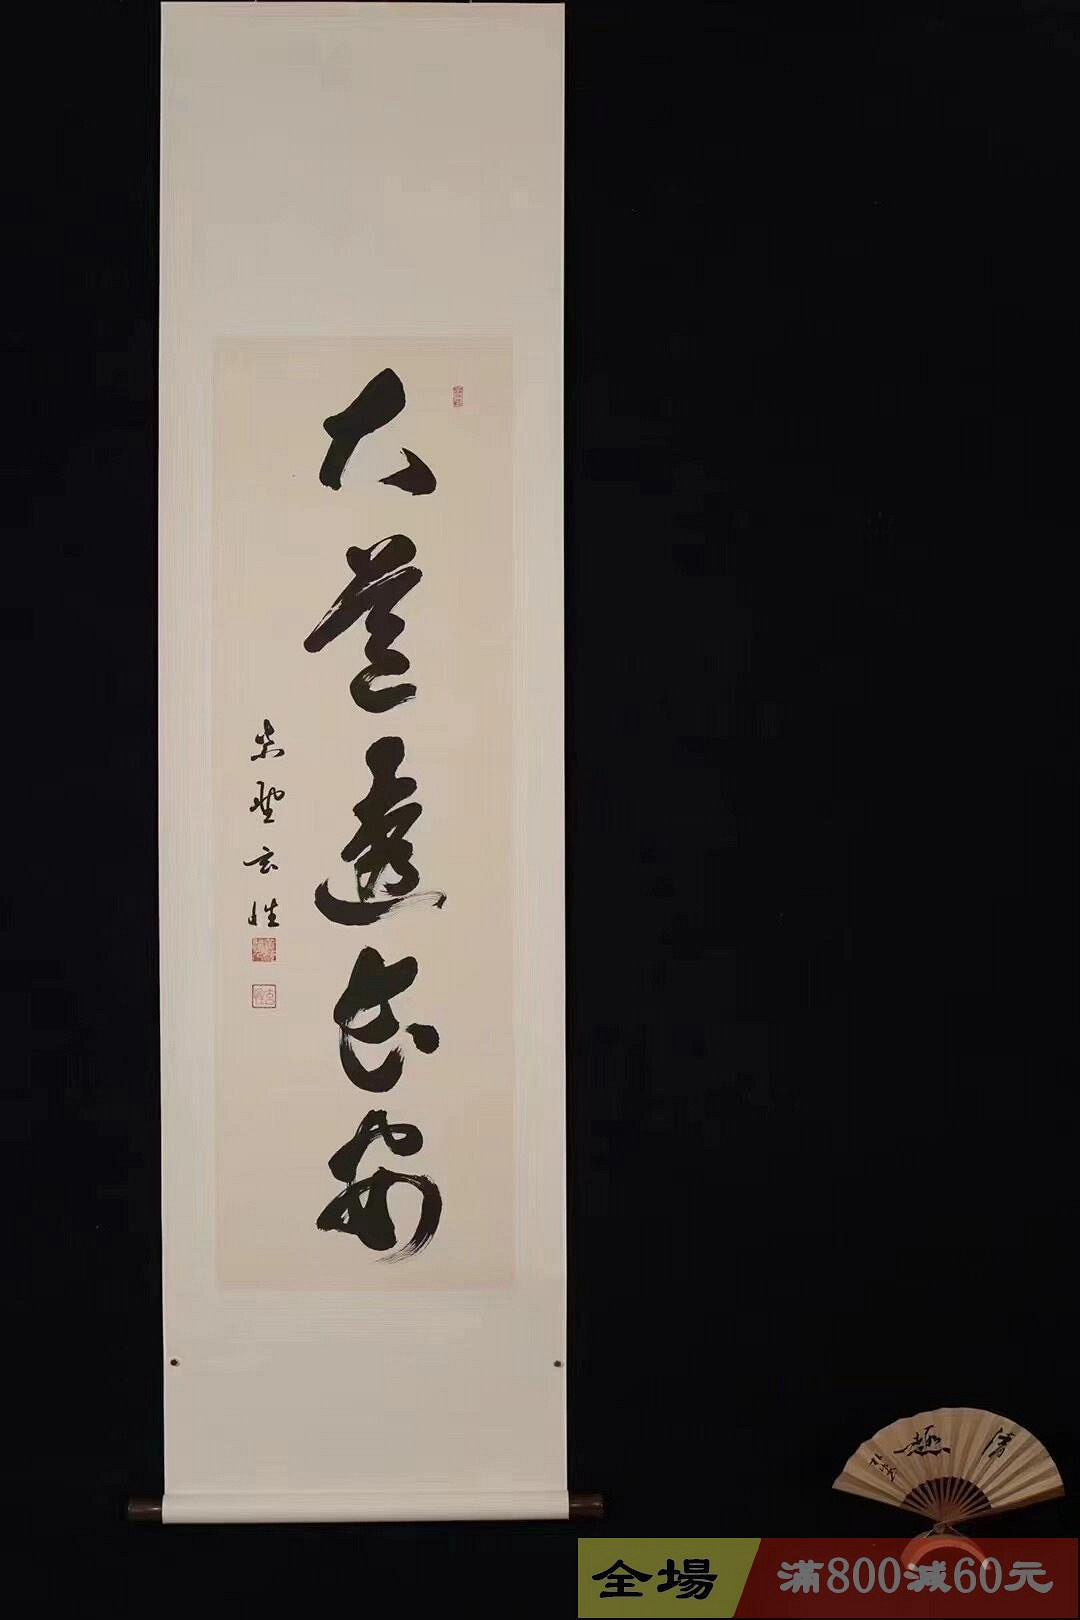 大道透長安
紫野玄性
清趣
全場
滿800減60元